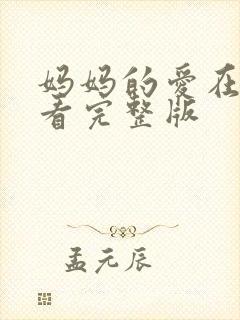 妈妈的爱在
看完整版
孟元辰